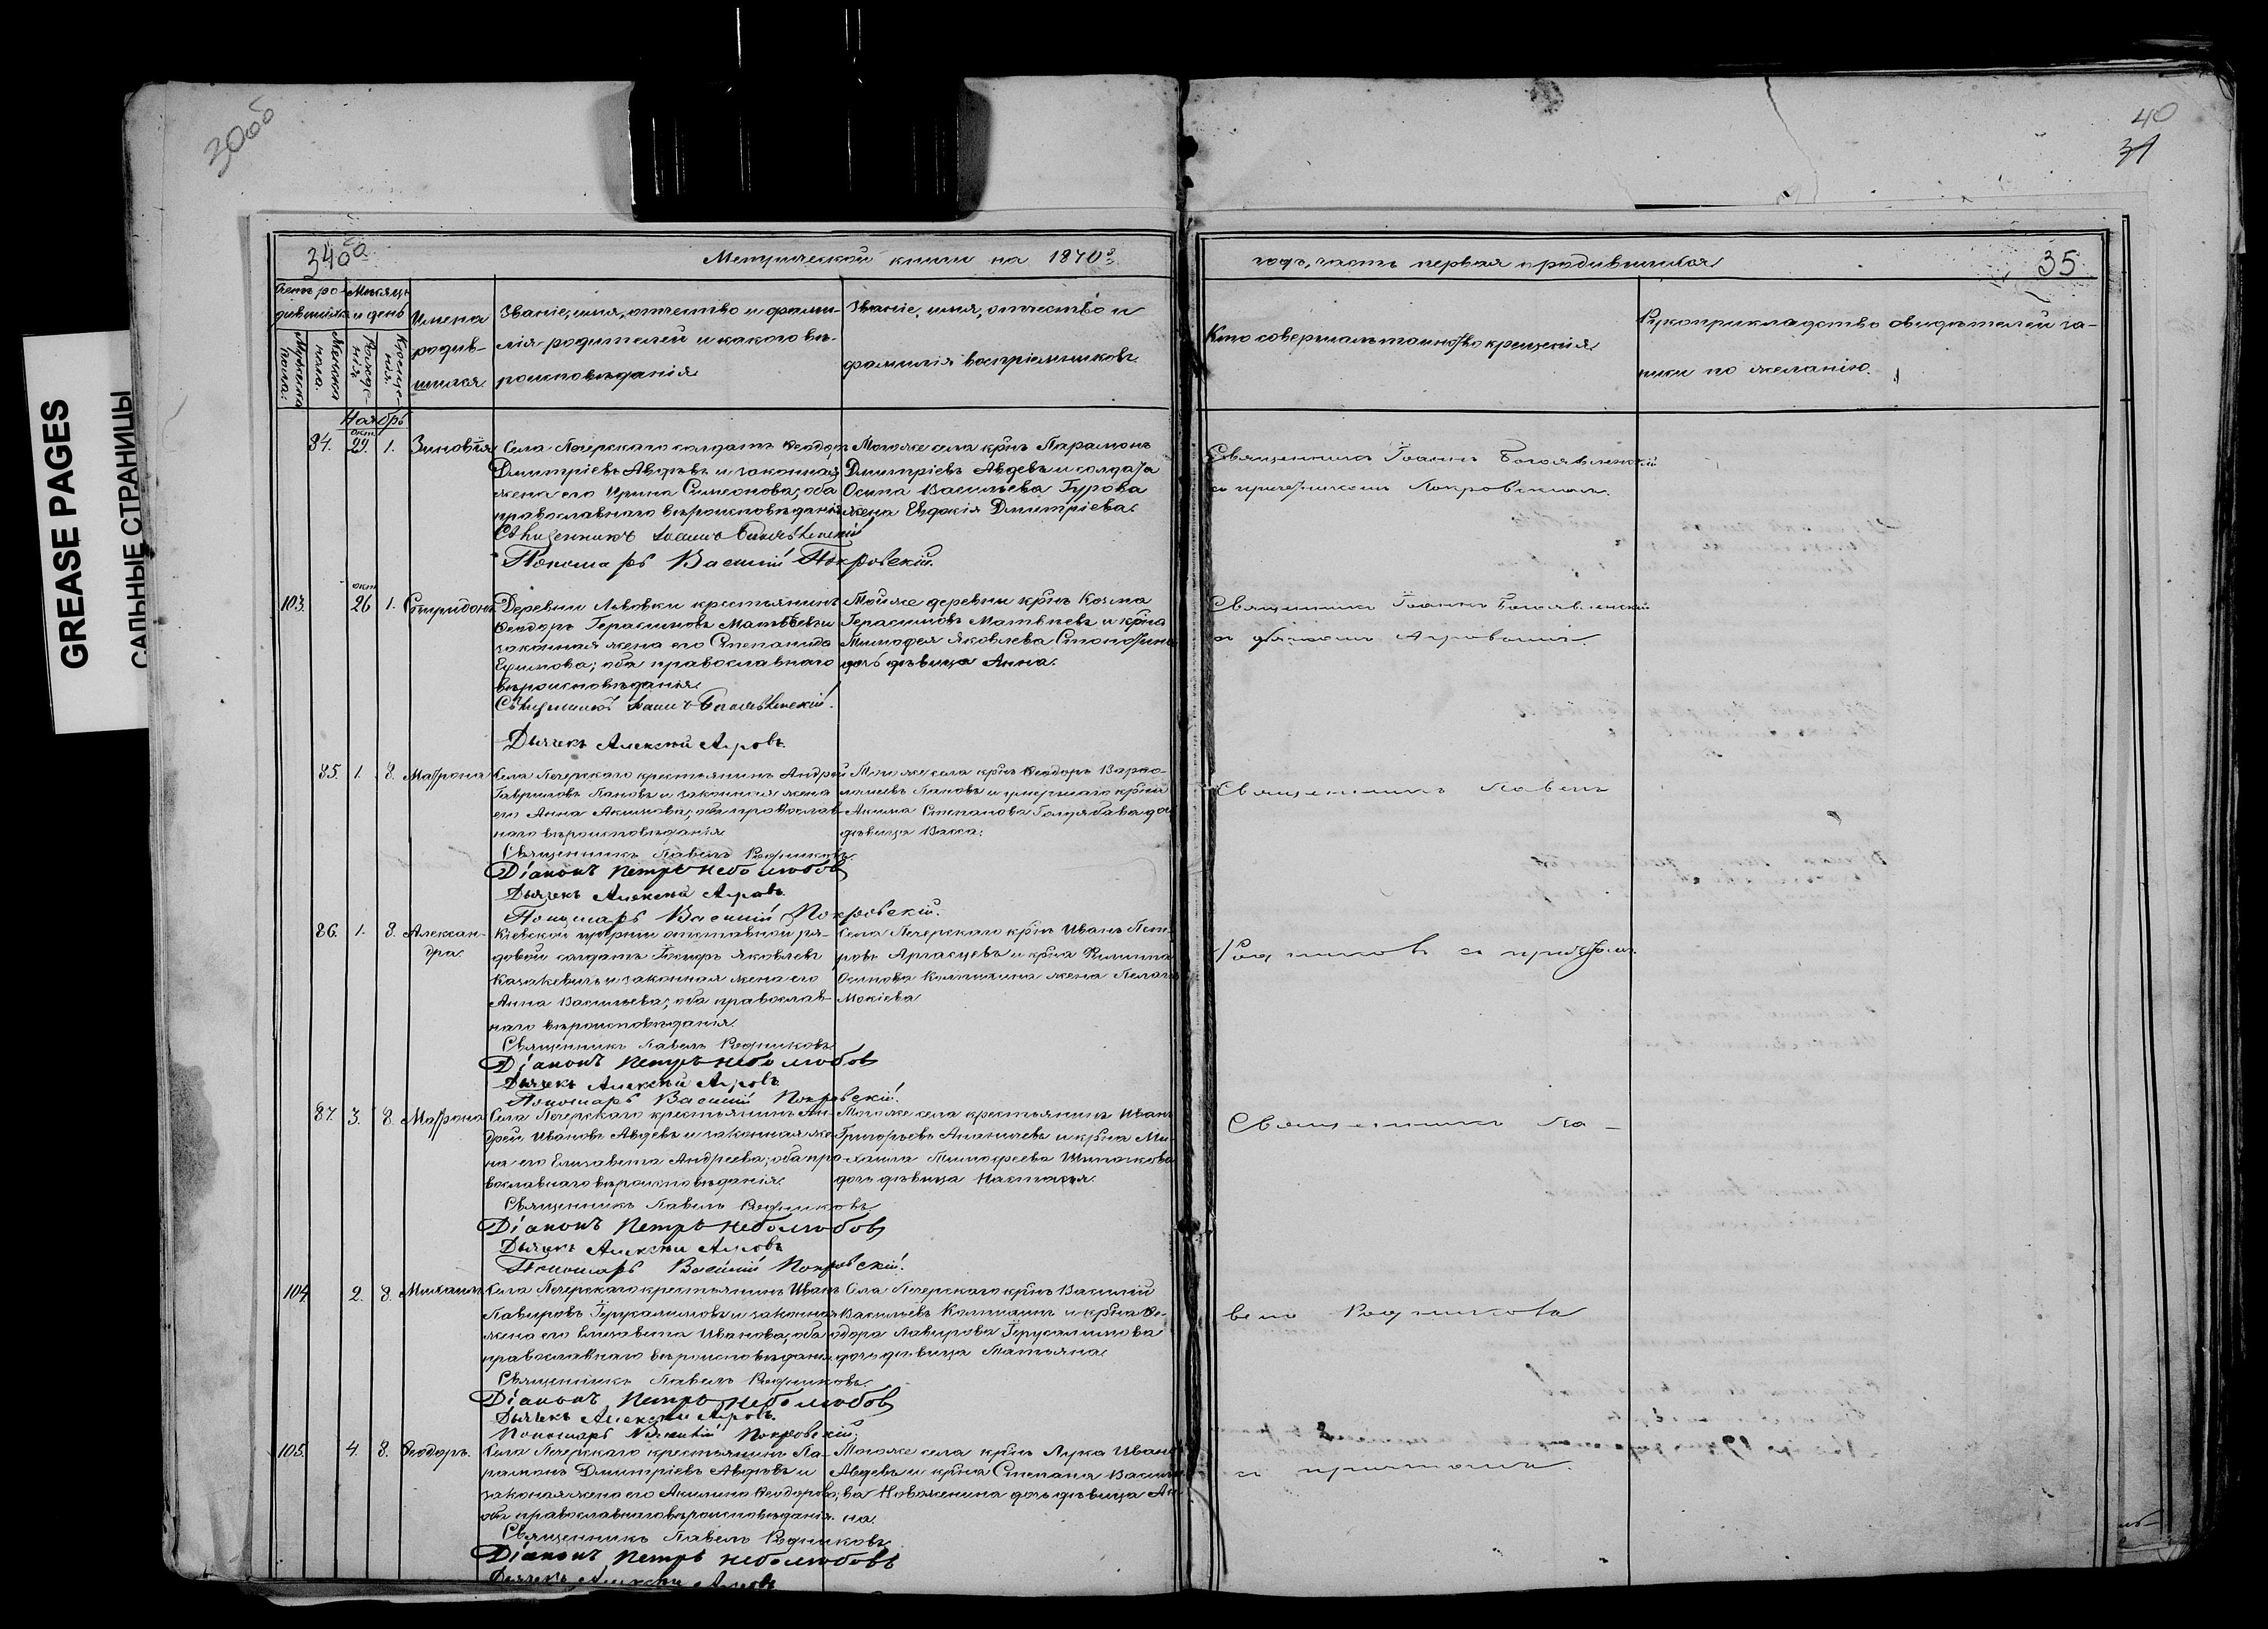 30об
40
31
GREASE PAGES
САЛЬНЫЕ СТРАНИЦЫ
34об
Метрической книги на 1870й
годъ, часть первая о родившихся.
35
Счетъ ро-
дившихся
Мужеска
пола.
Женска
пола
Мѣсяцъ
и день
Рожде-
нія.
Креще-
нія.
Имена
родив-
шихся.
Званіе, имя, отчество и фами-
лія родителей и какого вѣ-
роисповѣданія.
Званіе, имя, отчество и
фамилія воспріемниковъ.
Кто совершалъ таинство крещенія.
Рукоприкладство свидѣтелей за-
писи по желанію.
Ноябрь
84. окт. 29. 1. Зиновія
Села Печерскаго солдатъ Ѳеодоръ
Дмитріевъ Авдѣевъ и законная
жена его Ирина Симеонова; оба
православнаго вѣроисповѣданія
Священникъ Іоаннъ Богоявленскій
Пономарь Василій Покровскій.
Тогоже села крнъ Парамонъ
Дмитріевъ Авдевъ и солдата
Осипа Васильева Гурова
жена Евдокія Дмитріева.
Священникъ Іоаннъ Богоявленскій
съ причетникомъ Покровскимъ.
103. окт 26 1. Спиридонъ
Деревни Львовки крестьянинъ
Ѳеодоръ Герасимовъ Матвѣевъ и
законная жена его Степанида
Ефимова; оба православнаго
вѣроисповѣданія.
Священникъ Іоаннъ Богоявленскій.
Дьячекъ Алексѣй Агровъ.
Тойже деревни крнъ Козма
Герасимовъ Матвѣевъ и крна
Тимофея Яковлева
дочь дѣвица Анна.
Священникъ Іоаннъ Богоявленскій
съ дьячкомъ Агровымъ.
85. 1. 8. Матрона
Села Печерскаго крестьянинъ Андрей
Гавриловъ Пановъ и законная жена
его Анна Акимова; оба православ-
наго вѣроисповѣданія
Священникъ Павелъ Родниковъ.
Діаконъ Петръ Неболюбовъ
Дьячекъ Алексѣй Агровъ.
Пономарь Василій Покровскій.
Тогоже села крнъ Ѳеодоръ Варфо-
ломеевъ Пановъ и умершаго крна
Акима Степанова
дѣвица Васса.
Священникъ Павелъ
86. 1. 8. Алексан-
дра.
Кіевской губерніи отставной ря-
довой солдатъ Іосифъ Яковлевъ
Казакевичъ и законная жена его
Анна Васильева; оба православ-
наго вѣроисповѣданія.
Священникъ Павелъ Родниковъ
Діаконъ Петръ Неболюбовъ
Дьячекъ Алексѣй Агровъ
Пономарь Василій Покровскій.
Села Печерскаго крнъ Иванъ Пет-
ровъ и крна Филиппа
Осипова жена Пелагія
Мокіева
Родниковъ съ причтомъ.
87. 3. 8. Матрона
Села Печерскаго крестьянинъ Ан-
дрей Ивановъ Авдевъ и законная же-
на его Елизавета Андреева; оба пра-
вославнаго вѣроисповѣданія.
Священникъ Павелъ Родниковъ
Діаконъ Петръ Неболюбовъ
Дьячекъ Алексѣй Агровъ
Пономарь Василій Покровскій.
Тогоже села крестьянинъ Иванъ
Григорьевъ Ананичевъ и крна Ми-
хаила Тимофеева
дочь дѣвица Настасья.
Священникъ Па-
104. 2. 8. Михаилъ
Села Печерскаго крестьянинъ Иванъ
Лавировъ Іерусалимовъ и законная
жена его Елизавета Иванова; оба
православнаго вѣроисповѣданія
Священникъ Павелъ Родниковъ.
Діаконъ Петръ Неболюбовъ
Дьячекъ Алексѣй Агровъ.
Пономарь Василій Покровскій.
Села Печерскаго крнъ Василій
Васильевъ и крна Ѳе-
одора Лавирова Іерусалимова
дочь дѣвица Татьяна.
велъ Родниковъ
105. 4. 8. Ѳеодоръ.
Села Печерскаго крестьянинъ Па-
рамонъ Дмитріевъ Авдѣевъ и
законая жена его Акилина Ѳеодорова;
оба православнаго вѣроисповѣданія.
Священникъ Павелъ Родниковъ
Діаконъ Петръ Неболюбовъ
Дьячекъ Алексѣй Агровъ
Тогоже села крнъ Лука Ивановъ
Авдевъ и крна Степана Василье-
ва Новоженина дочь дѣвица Ан-
на.
съ причтомъ.